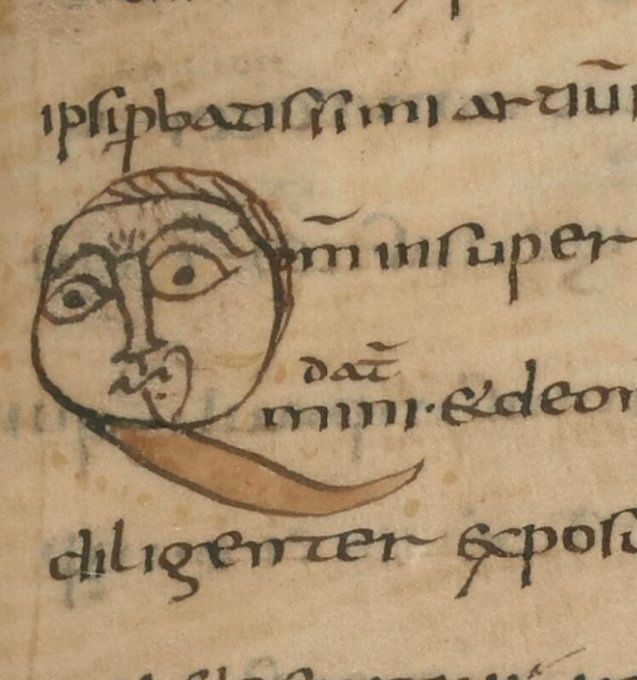 ipsi ꝓbatissimi artiū
Qm̄ insuper
dat̄
mini·&deor
diligenter expos